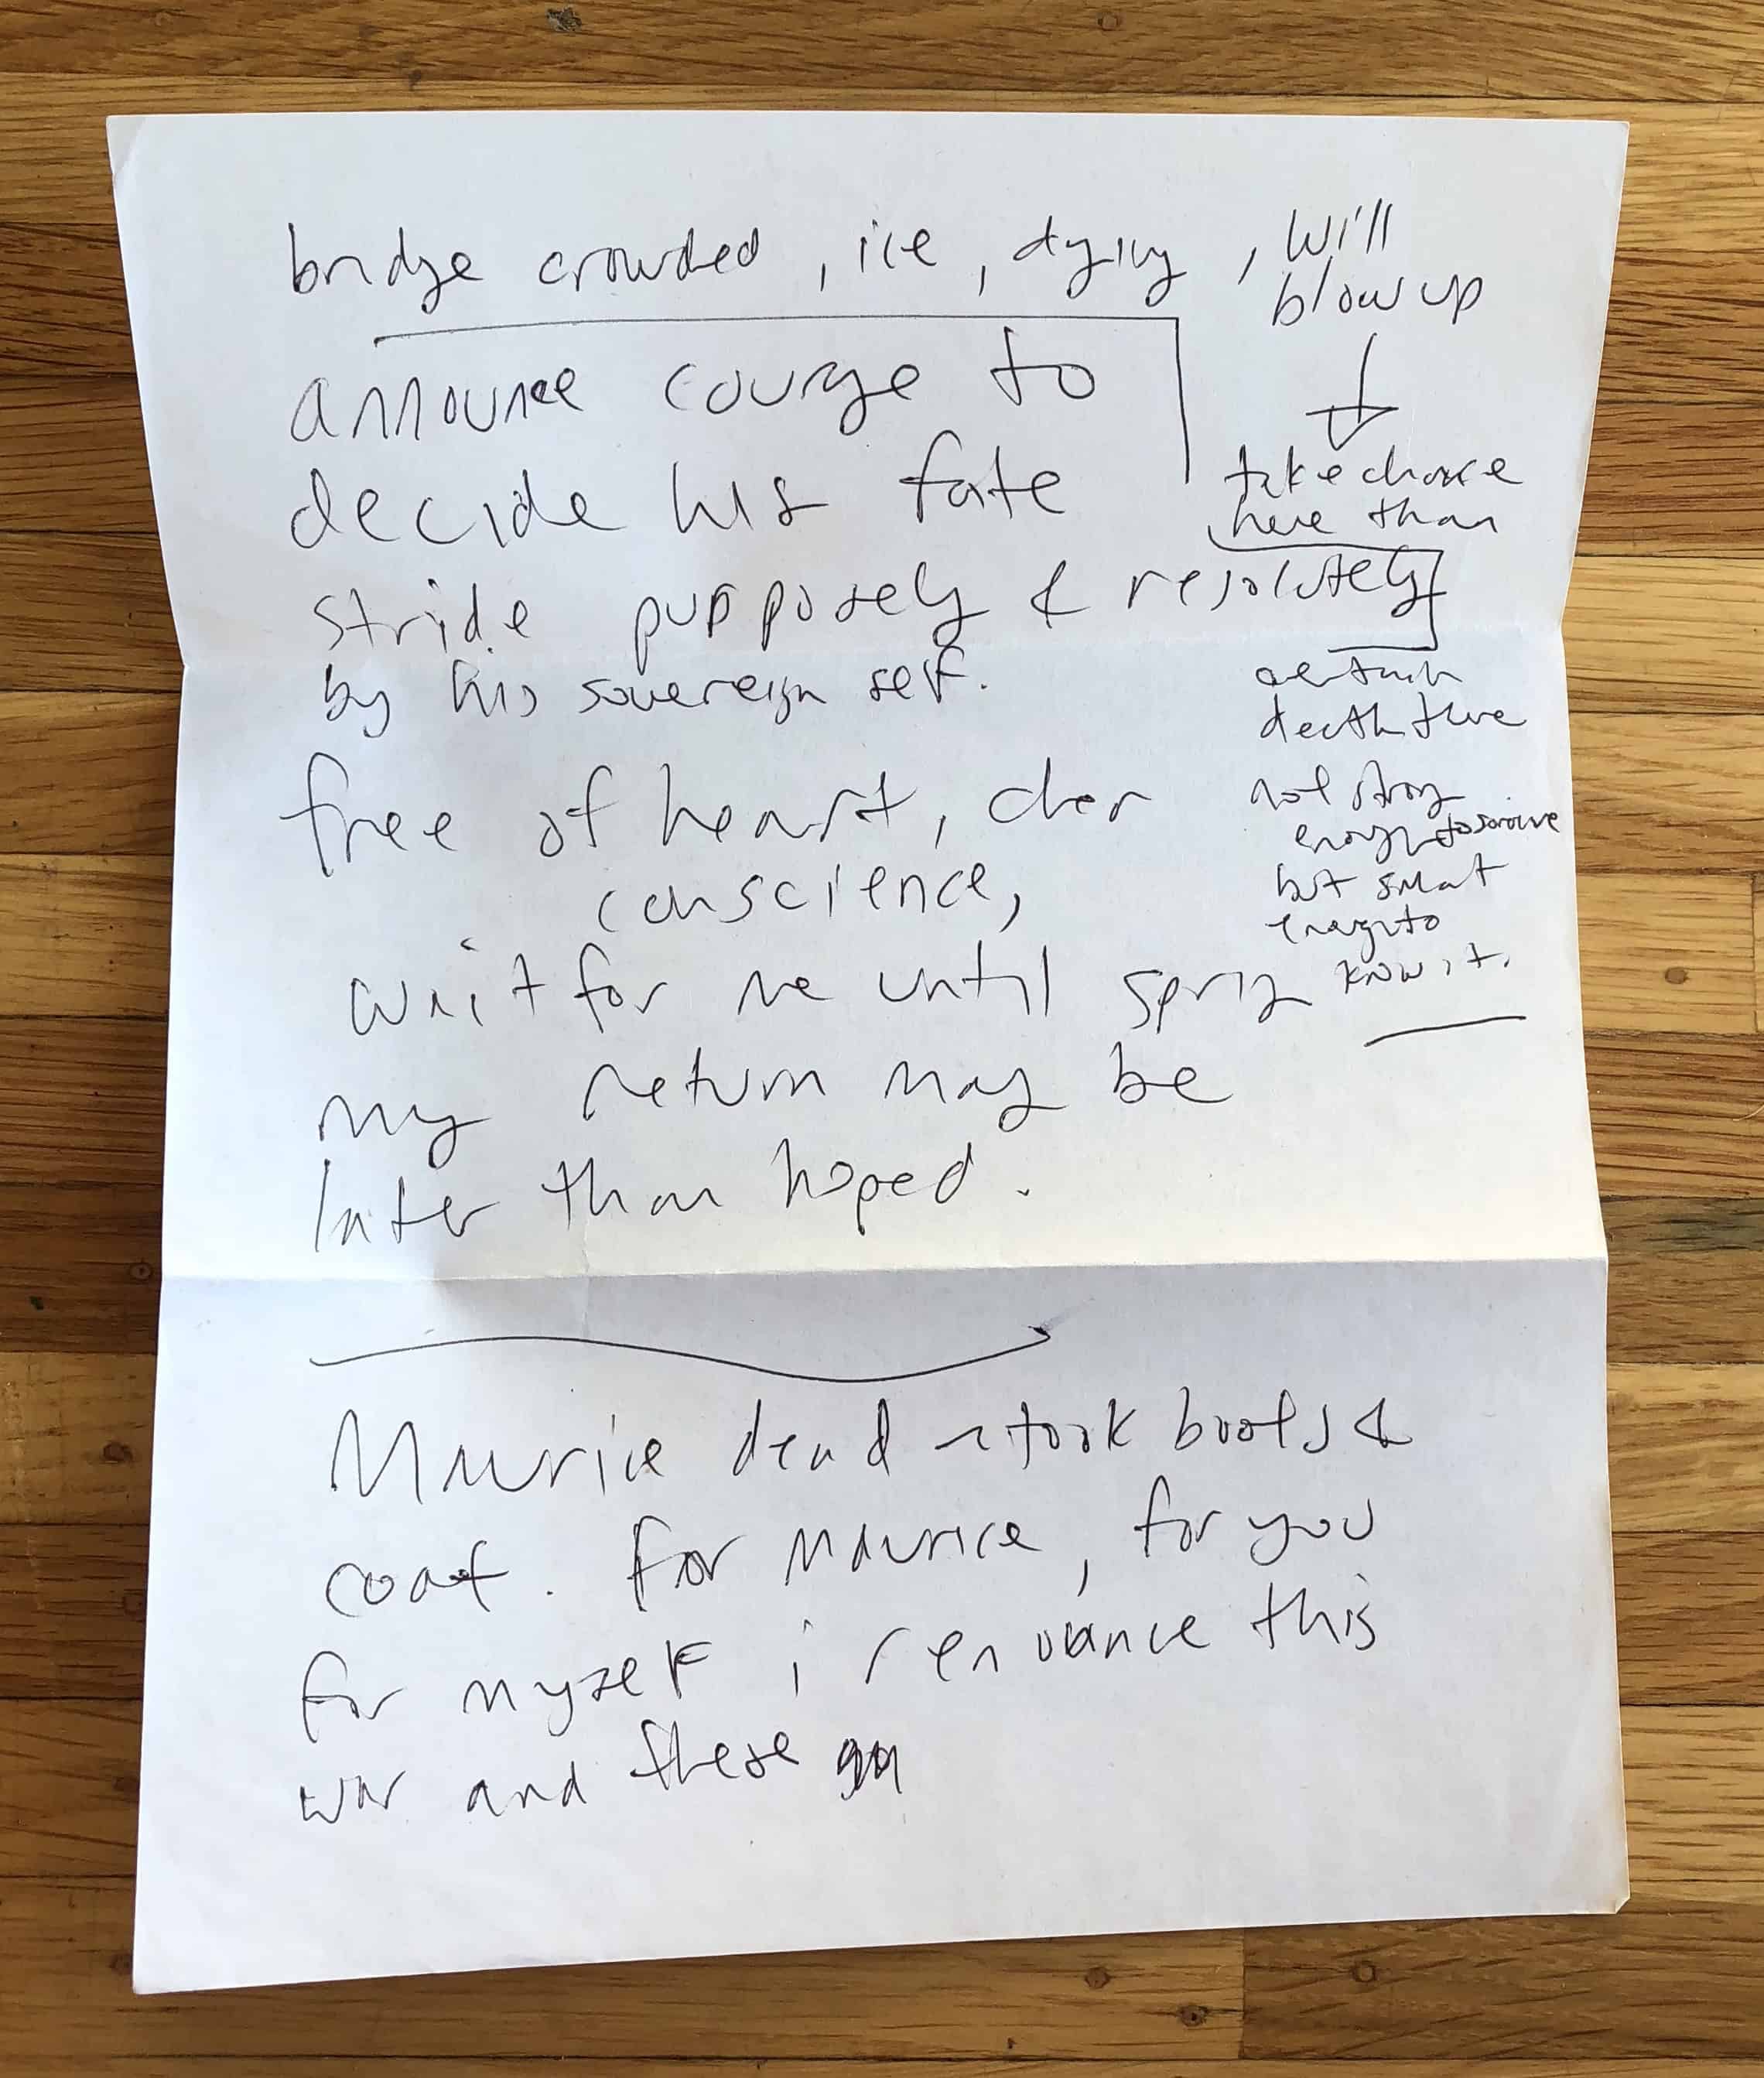 bridge crowded, ice, dying, will
blow up
take chance
here than
certain
death there
not strong
enough to survive
but smart
enough to
know it.
announce courage to
decide his fate
stride purpposely & resolutely
by his sovereign self.
free of heart, clear
conscience,
wait for me until spring
my return may be
later than hoped.
Maurice dead took boots &
coat. For Maurice, for you
for myself i renounce this
war and these